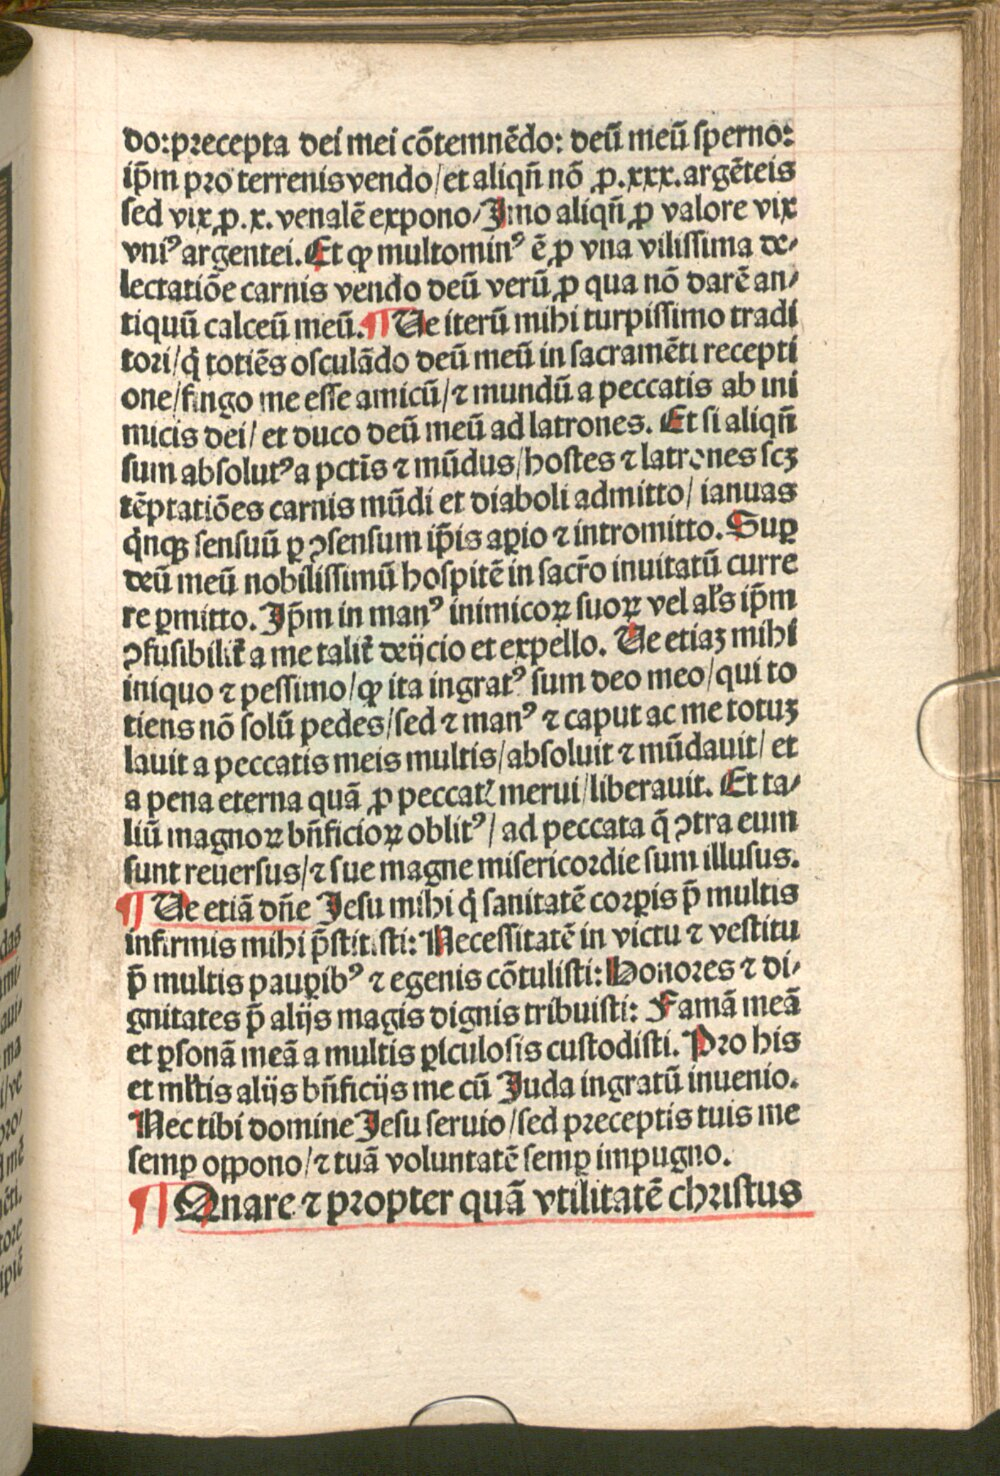 do:precepta dei mei cōtemnēdo: deū meū sperno:
ip̄m pro terrenis vendo/et aliqn̄ nō ꝓ.xxx.argēteis
sed vix ꝓ.x. venalē expono/Imo aliqn̄ ꝓ valore vix
vniꝰ argentei. Et qꝙ multominꝰ ē ꝓ vna vilissima de/
lectatiōe carnis vendo deū verū ꝓ qua nō darē an/
tiquū calceū meū. ¶ Ue iterū mihi turpissimo tradi
tori/q̇ totiēs osculādo deū meū in sacramēti recepti
one/fingo me esse amicū/⁊ mundū a peccatis ab ini
micis dei/ et duco deū meū ad latrones. Et si aliqn̄
sum absolutꝰ a pctīs ⁊ mūdus/hostes ⁊ latrones scꝫ
tēptatiōes carnis mūdi et diaboli admitto/ ianuas
q̇nqꝫ sensuū ꝑ ꝯsensum ip̄is aꝑio ⁊ intromitto. Suꝑ
deū meū nobilissimū hospitē in sacr̄o inuitatū curre
re ꝑmitto. Ip̄m in manꝰ inimicoꝝ suoꝝ vel al's ip̄m
ꝯfusibilit̄ a me talit̄ deijcio et expello. Ue etiaꝫ mihi
iniquo ⁊ pessimo/qꝙ ita ingratꝰ sum deo meo/qui to
tiens nō solū pedes/sed ⁊ manꝰ ⁊ caput ac me totuꝫ
lauit a peccatis meis multis/absoluit ⁊ mūdauit/ et
a pena eterna quā ꝓ peccatꝭ merui/liberauit. Et ta/
liū magnoꝝ bn̄ficioꝝ oblitꝰ/ ad peccata q̄ ꝯtra eum
sunt reuersus/⁊ sue magne misericordie sum illusus.
¶ Ue etiā dn̄e Jesu mihi q̇ sanitatē corꝑis p̄ multis
infirmis mihi p̄stitisti: Necessitatē in victu ⁊ vestitu
p̄ multis pauꝑibꝰ ⁊ egenis cōtulisti: Honores ⁊ di/
gnitates p̄ alijs magis dignis tribuisti: Famā meā
et ꝑsonā meā a multis ꝑiculosis custodisti. Pro his
et ml̄tis alijs bn̄ficijs me cū Juda ingratū inuenio.
Nec tibi domine Jesu seruio/sed preceptis tuis me
semꝑ oꝑpono/⁊ tuā voluntatē semꝑ impugno.
¶ Quare ⁊ propter quā vtilitatē christus